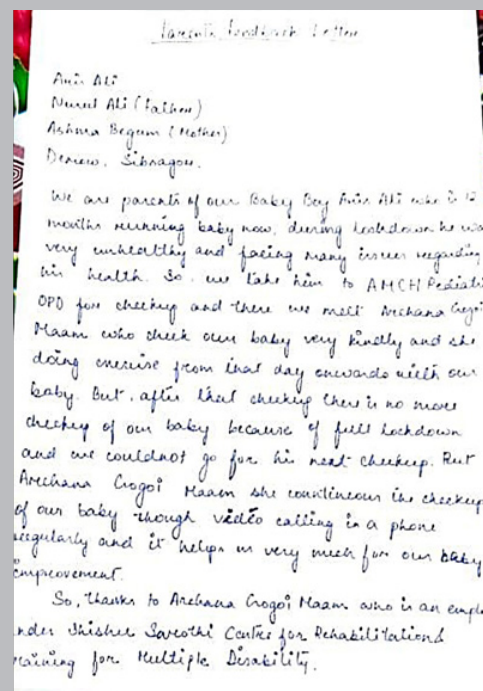 Parents Feedback Letter
Anir Ali
Nurul Ali (Father)
Ashma Begum (Mother)
Demow, Sibsagar.
We are parents of our Baby Boy Anir Ali who is 12
months running baby now, during lockdown he was
very unhealthy and facing many issues regarding
his health. So, we take him to AMCH Pediatri
OPD for checkup and there we mett Archana Gogoi
Maam who check our baby very kindly and she
doing exercise from that day onwards with our
baby. But, after that checkup there is no more
checkup of our baby because of full lockdown
and we couldnot go for his next checkup. But
Archana Gogoi Maam she countineous the checkup
of our baby though video calling in a phone
regularly and it helps us very much for our baby
improvement.
So, thanks to Archana Gogoi Maam who is an emplo
under Shishu Sarothi Centre for Rehabilitation &
raining for Multiple Disability.